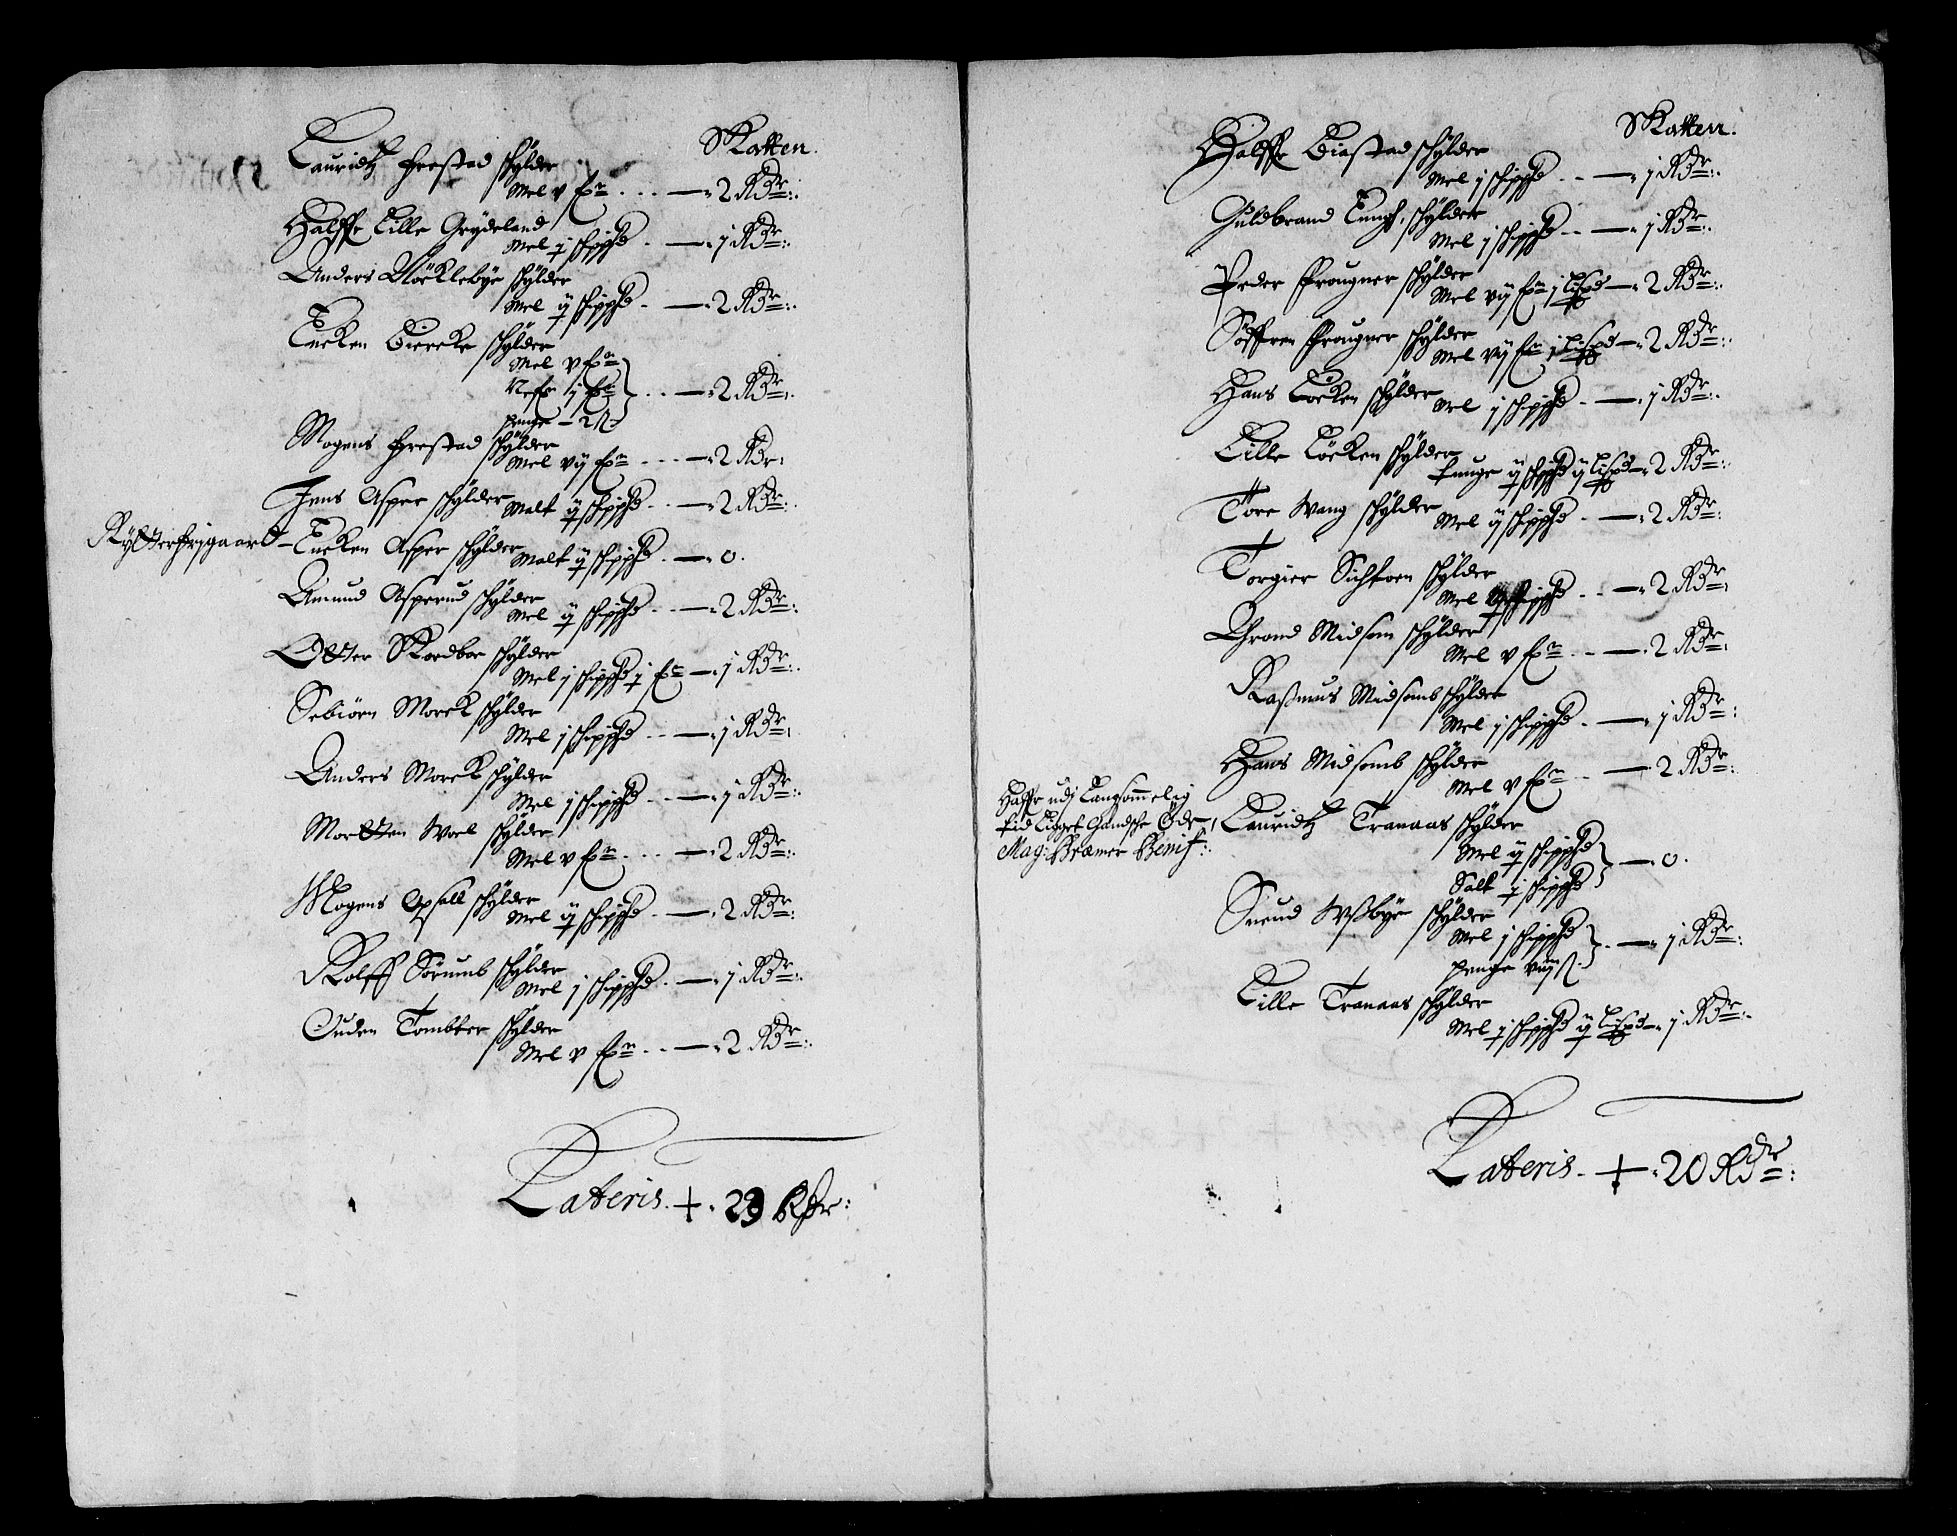 Skatten.
Lauridtz Frestad schylder
Mel v fr . . . — 2 Rdr:
Halffue Lille Grydeland
Mel j schippd . — j Rdr:
Anders Nöcklebye schylder
Mel ij schippd . — 2 Rdr:
Encken Biercke schylder
Mel v fr
Nefr j fr . . — 2 Rdr:
penge - 2 ß
Mogens Frestad schylder
Mel vij fr . . . — 2 Rdr:
Jens Asper schylder
Malt ij schippd . . — 2 Rdr:
Rytterfrjgaard - Encken Asper schylder
Malt ij schippd . — 0.
Amund Asperud schylder
Mel ij schippd . . — 2 Rdr:
Otter Skordboe schylder
Mel j schippd j fr — j Rdr:
Sebiörn Morck schylder
Mel j schippd . . — j Rdr:
Anders Morck schylder
Mel j schippd . . — j Rdr:
Mortten Woel schylder
Mel v fr . . . — 2 Rdr:
Mogens Opsall schylder
Mel ij schippd . — 2 Rdr:
Rolff Sörumb schylder
Mel j schippd . — j Rdr:
Ouden Tombter schylder
Mel v fr . . — 2 Rdr:
Lateris . + . 23 Rdr:
Skatten.
Halffue Biestad schylder
Mel j schippd . . — j Rdr:
Guldbrand schylder
Mel j schippd . . — j Rdr:
Peder Frougner schylder
Mel vij fr j Lispd — 2 Rdr:
Söffren Frougner schylder
Mel vij fr j Lispd — 2 Rdr:
Hans Löcken schylder
Mel j schippd . — j Rdr:
Lille Löcken schylder
Tunge ij schippd ij Lispd — 2 Rdr:
Tore Wang schylder
Mel ij schippd . — 2 Rdr:
Torgier schylder
Mel schippd . . — 2 Rdr:
Thrond Midsem schylder
Mel v fr . . — 2 Rdr:
Rasmus Midsemb schylder
Mel j schippd . — j Rdr:
Hans Midsemb schylder
Mel v fr . . — 2 Rdr:
Haffr udj Langsommelig
tid Ligget Gandsche Öde,
Mag: Bræmer Benif:
Lauridtz Tranaas schylder
Mel ij schippd
Salt j schippd — 0.
Suend Wssbye schylder
Mel j schippd
penge viij ß . — j Rdr:
Lille Tranaas schylder
Mel j schippd ij Lispd — j Rdr:
Lateris . + . 20 Rdr: